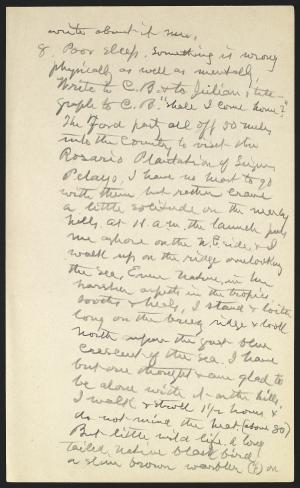 write about it now.
8. Poor sleep. Something is wrong
physically as well as mentally.
Write to C.B. & to Julian; tele-
graph to C.B. "Shall I come home?"
The Ford party all off 20 miles
into the Country to visit the
Rosario Plantation of Señor
Pelayo. I have no heart to go
with them but rather crave
a little solitude on the nearby
hills. At 11 a.m. the launch puts
me ashore on the N.E. side, & I
walk up on the ridge overlooking
the sea. Even Nature, in her
harsher aspects in the tropics,
soothes & heals. I stand & loiter
long on the breezy ridge & look
north upon the great blue
crescent of the sea. I have
but one thought & am glad to
be alone with it on the hills.
I walk & stroll 1 1/2 hours &
do not mind the heat (above 80)
But little wild life. A long
tailed native black bird,
a slim brown warbler (?) on